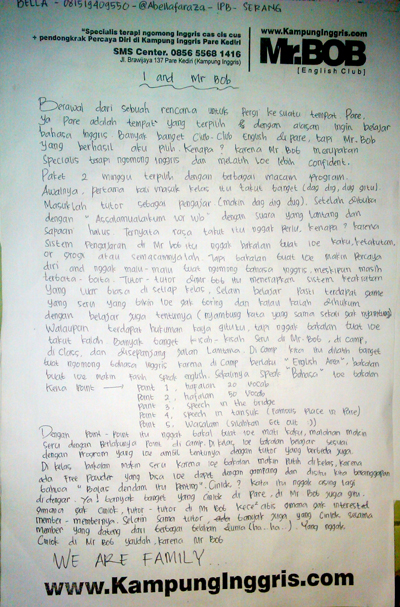 BELLA - 081519409550 - @Abellafaraza - IPB - SERANG
"Specialis terapi ngomong Inggris cas cis cus
+ pendongkrak Percaya Diri di Kampung Inggris Pare Kediri
SMS Center. 0856 5568 1416
Jl. Brawijaya 137 Pare Kediri (Kampung Inggris)
www.KampungInggris.com
Mr.BOB
[English Club]
I and Mr Bob
Berawal dari sebuah rencana untuk pergi ke suatu tempat Pare.
Ya Pare adalah tempat yang terpilih dengan alasan ingin belajar
bahasa Inggris Banyak banget Club-Club English di pare, tapi Mr Bob
yang berhasil aku pilih. Kenapa? karena Mr Bob merupakan
Specialis terapi ngomong inggris dan melatih loe lebih confident.
Paket 2 minggu terpilih dengan berbagai macam program.
Awalnya, pertama kali masuk kelas itu takut banget (dag dig, dag dig).
Masuklah tutor sebagai pengajar (makin dag dig dug). Setelah dibuka
dengan "Assalamualaikum wr wb" dengan suara yang lantang dan
sapaan halus. Ternyata rasa takut itu nggak perlu. Kenapa? karena
Sistem Pengajaran di Mr bob itu nggak bakalan buat loe kaku, ketakutan,
or grogi atau semacamnya. Tapi bakalan buat loe makin percaya
diri and nggak malu-malu buat ngomong bahasa inggris, meskipun masih
terbata-bata. Tutor-tutor di Mr bob itu menerapkan sistem
yang luar biasa di setiap kelas. Selain belajar pasti terdapat game
yang seru yang bikin loe gak boring and kalau kalah dihukum,
dengan belajar juga tentunya
Walaupun terdapat hukuman kaya gitu, tapi nggak bakalan buat loe
takut kalah. Banyak banget kisah-kisah seru di Mr Bob, di camp,
di Class, dan disepanjang Jalan Lamtana. Di Camp kita itu dilatih banget
buat ngomong bahasa inggris karena di Camp berlaku "English Area", bakalan
buat loe makin fasih speak english. Sekalinya speak "Bahasa" loe bakalan
kena Point → Point 1. hapalan 20 vocab
Point 2. hafalan 50 vocab
Point 3. speech in the bridge
Point 4. speech in tansuk (Famous Place in Pare)
Point 5. Wasalam (silahkan Get out :))
Dengan Point-Point itu nggak bakal buat loe mati kaku, malahan makin
seru dengan
dengan program yang loe ambil tentunya dengan tutor yang berbeda juga.
Di kelas bakalan makin seru karena loe bakalan makin
ada Free Reacter yang bisa loe dapet dengan gampang dan
bahasa "Bajas dandani itu Penting". Cintok? kata itu nggak asing lagi
di dengar. Ya! banyak banget yang cintok di Pare, di Mr Bob juga gitu.
gimana gak cintok, tutor-tutor di Mr Bob kece abis gimana gak interested
member-membernya. Selain sama tutor, banyak juga yang cintok sesama
member yang datang dari berbagai belahan dunia (ha..ha..). Yang nggak
Cintok di Mr Bob yaudah, karena Mr Bob
WE ARE FAMILY...
www.KampungInggris.com